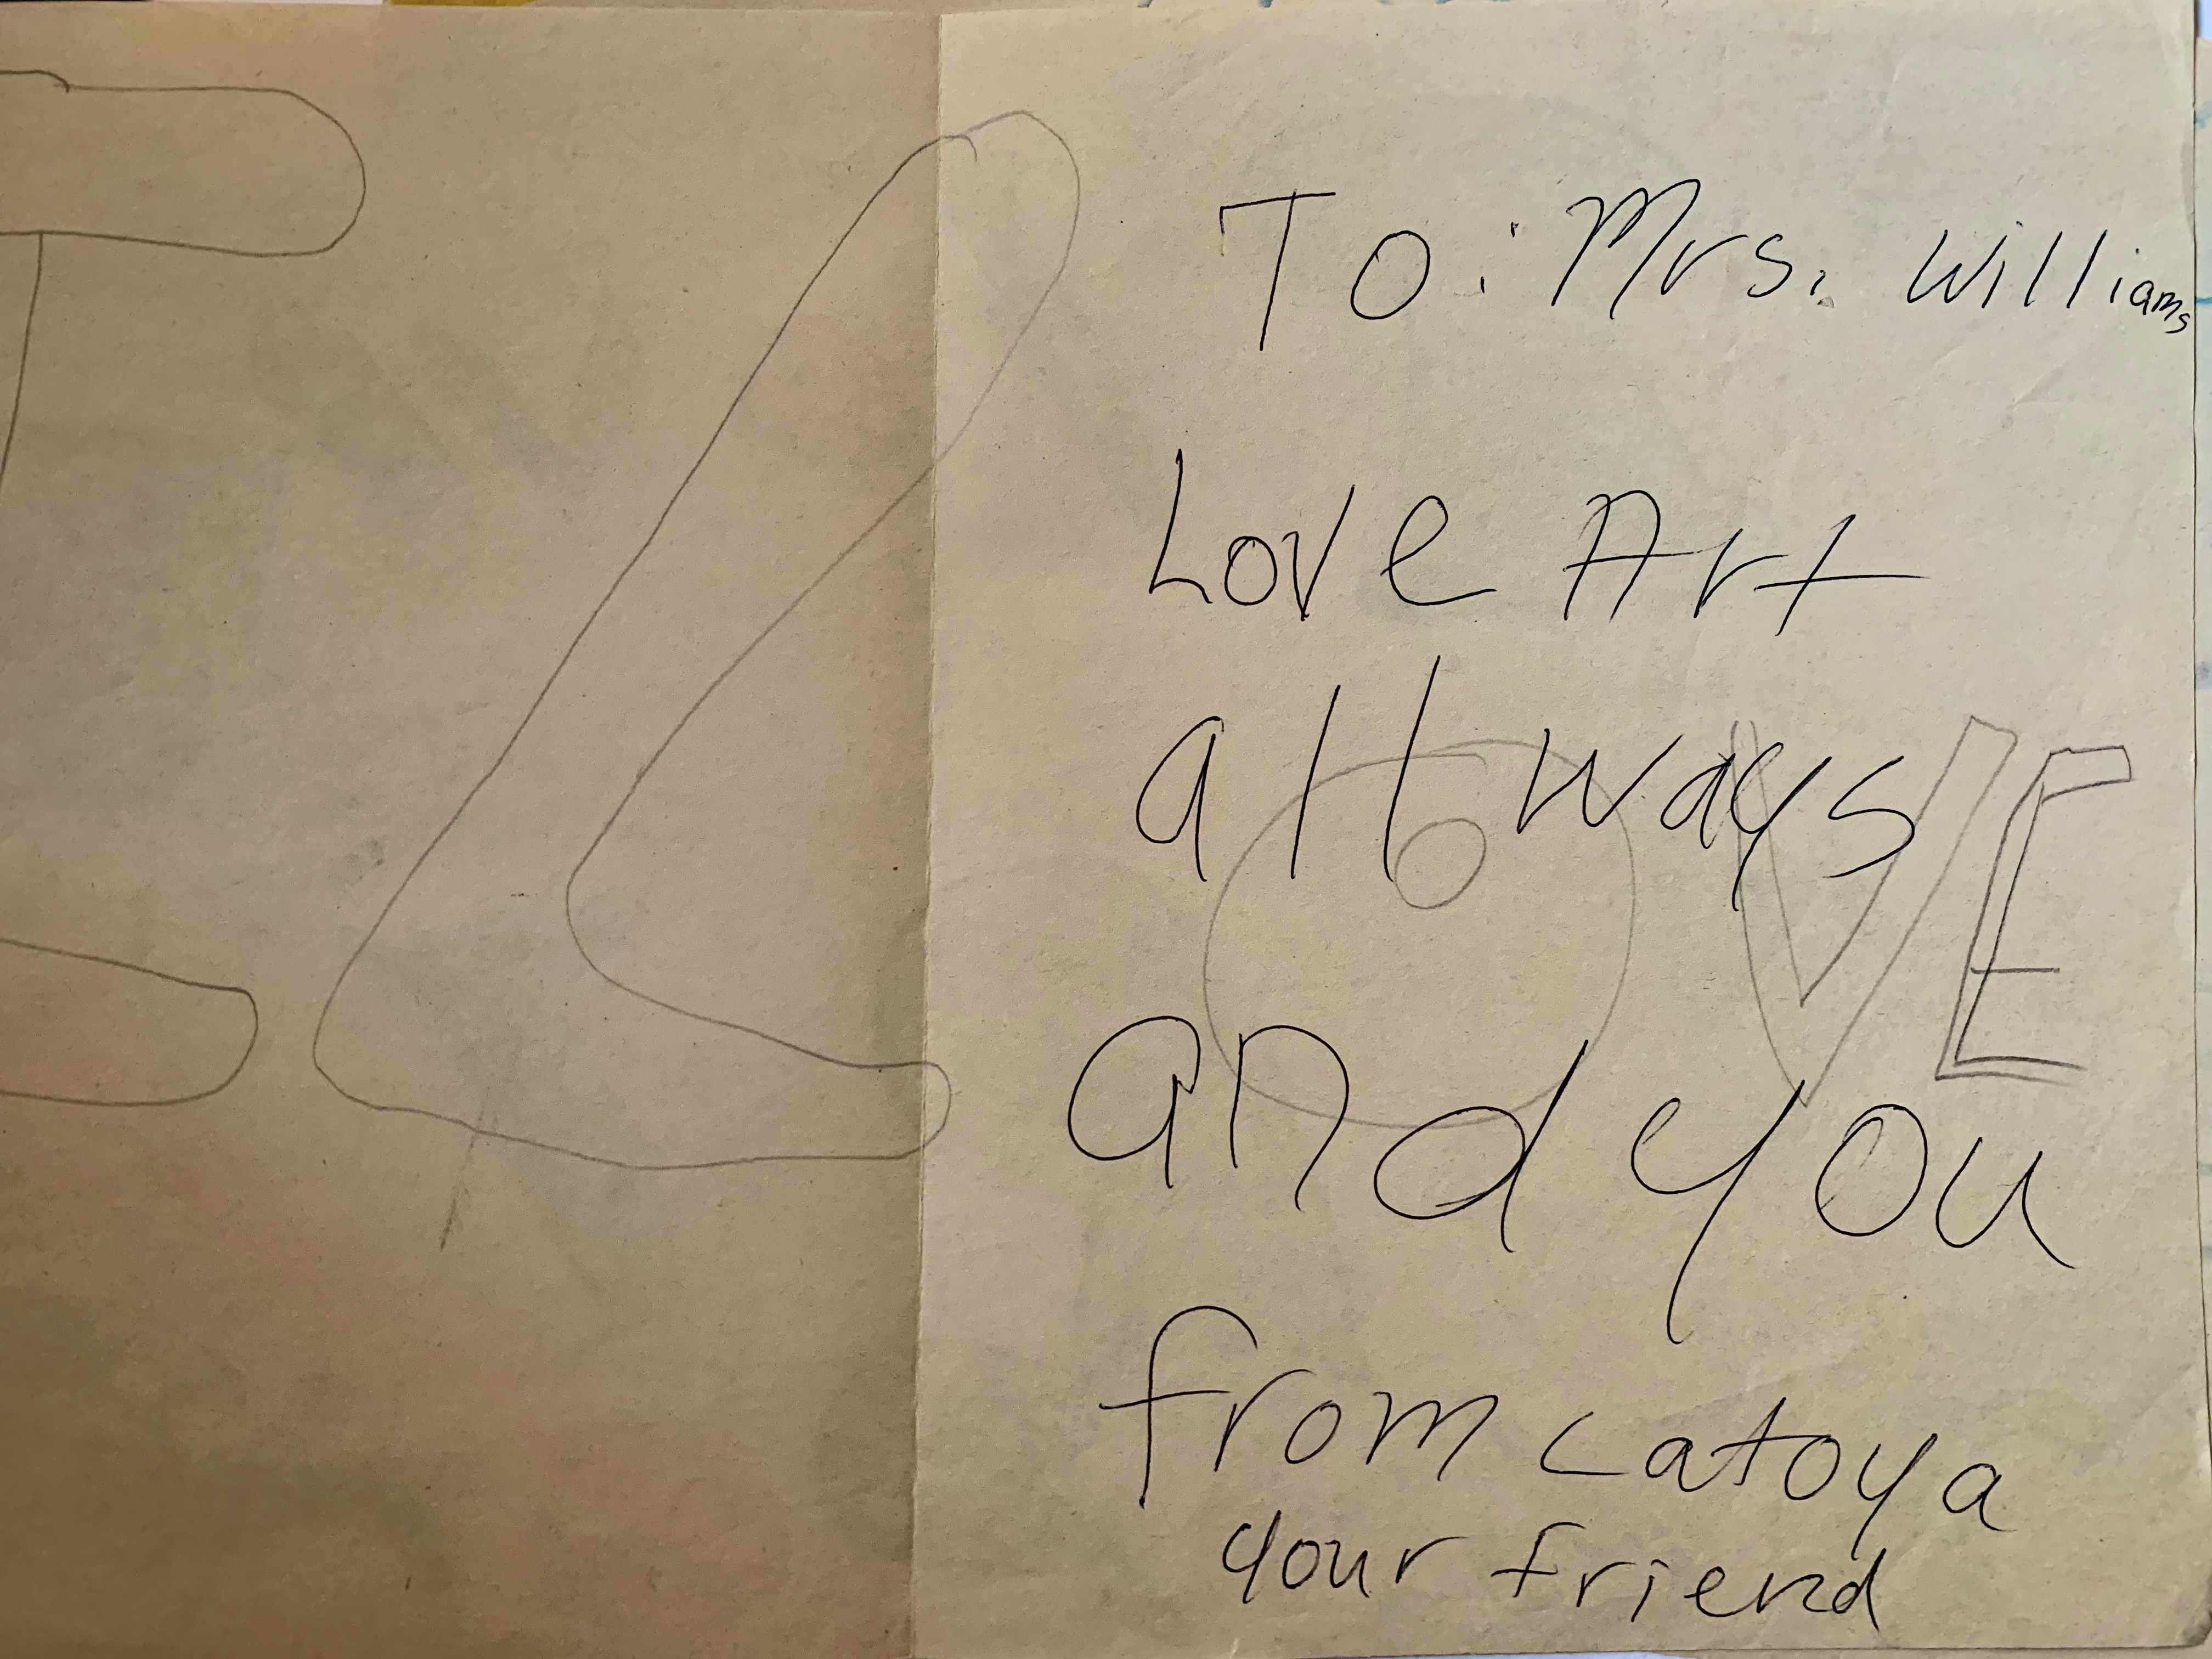 I LOVE
To: Mrs. Williams
Love Art
allways
and you
from Latoya
your friend